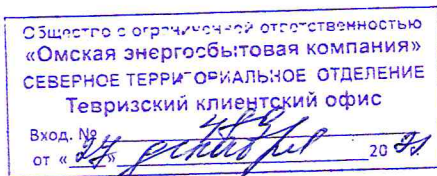 Общество с ограниченной ответственностью
«Омская энергосбытовая компания»
СЕВЕРНОЕ ТЕРРИТОРИАЛЬНОЕ ОТДЕЛЕНИЕ
Тевризский клиентский офис
Вход. №
от «27» декабря 2021